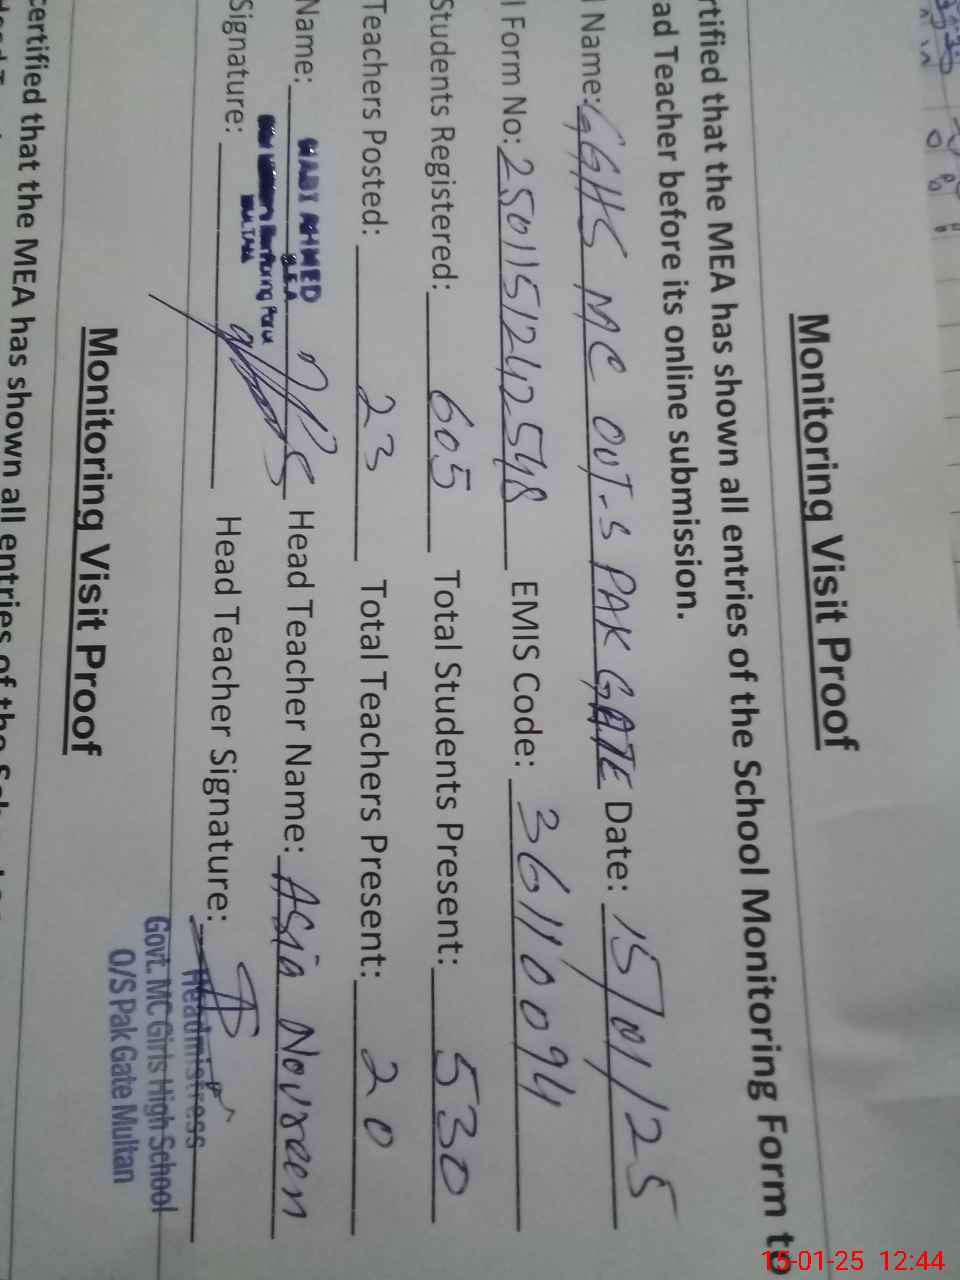 Monitoring Visit Proof
rtified that the MEA has shown all entries of the School Monitoring Form to
ad Teacher before its online submission.
Name: GGHS MC OUT-S PAK GATE Date: 15/01/25
Form No: 2501151242548 EMIS Code: 36110094
Students Registered: 605 Total Students Present: 530
Teachers Posted: 23 Total Teachers Present: 20
Name: AHMED Head Teacher Name: Asia Novreen
M.E.A
MULTAN
Signature: Head Teacher Signature:
Headmistress
Govt. MC Girls High School
O/S Pak Gate Multan
Monitoring Visit Proof
certified that the MEA has shown all entries of the
15-01-25 12:44